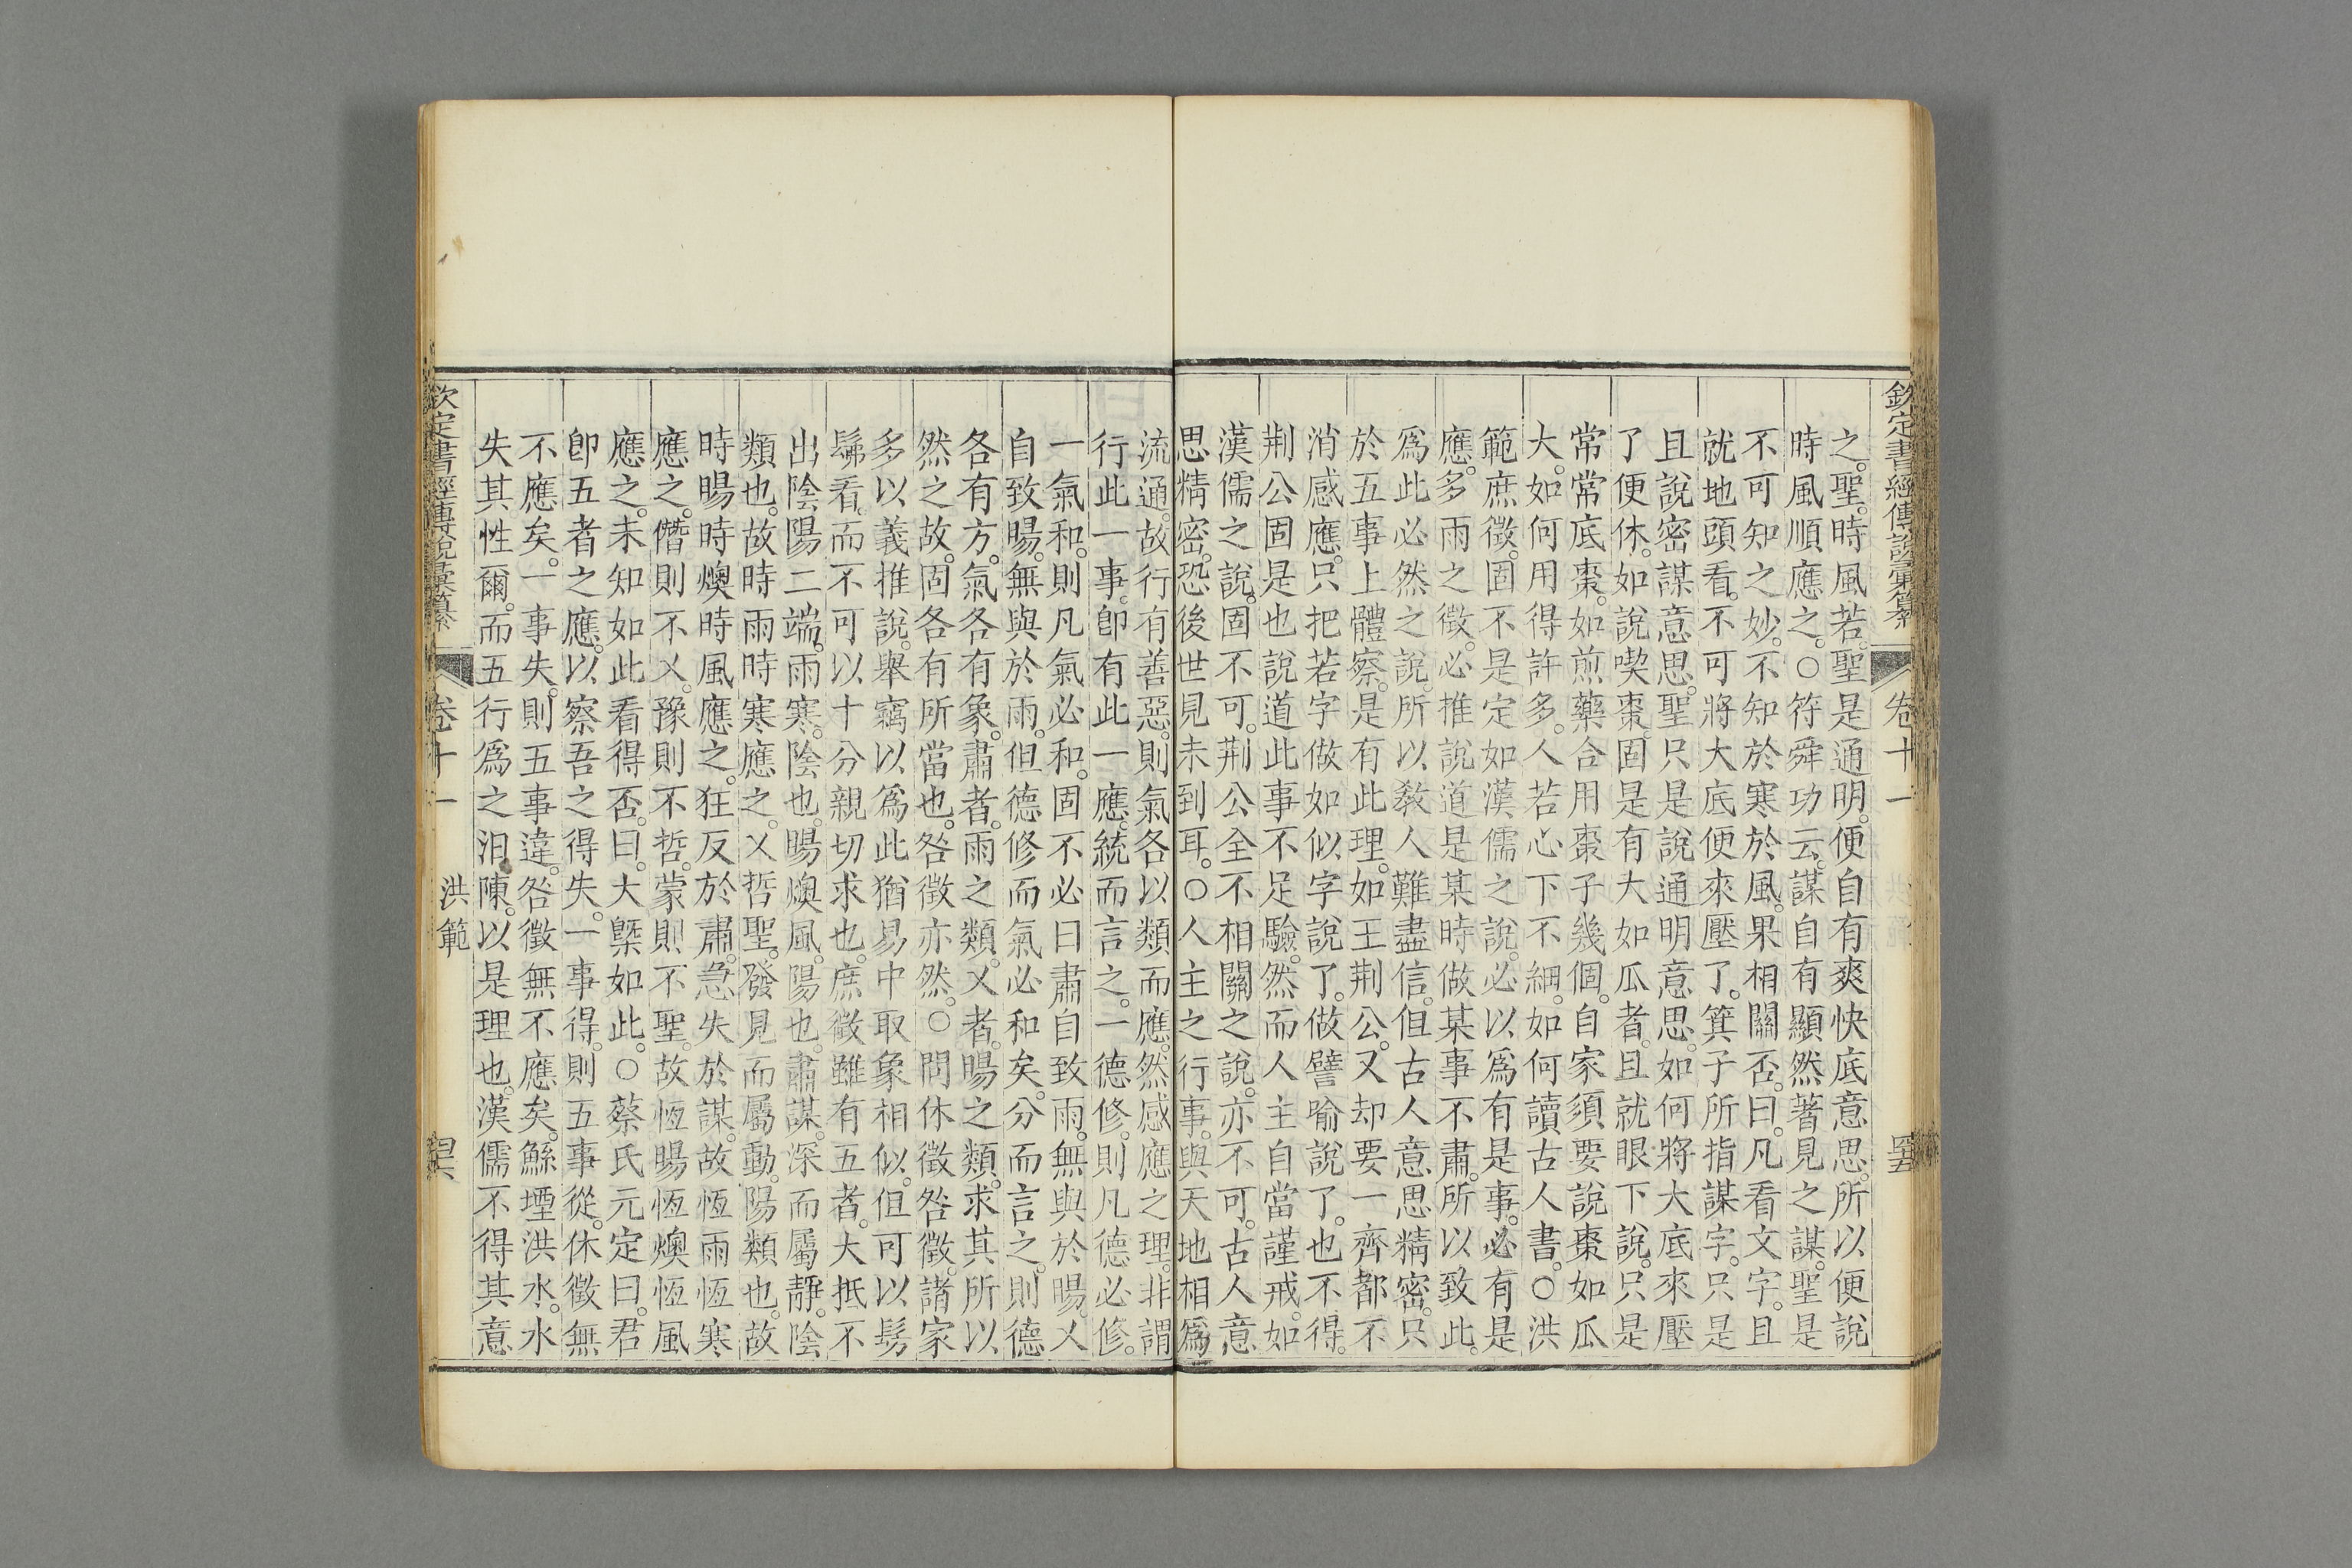 欽定書經傳說彙纂 卷十一 四五
之。聖。時風若。聖是通明。便自有爽快底意思。所以便說
時風順應之。○符舜功云。謀自有顯然著見之謀。聖是
不可知之妙。不知於寒於風。果相關否。曰。凡看文字。且
就地頭看。不可將大底便來壓了。箕子所指謀字。只是
且說密謀意思。聖只是說通明意思。如何將大底來壓
了便休。如說喫棗。固是有大如瓜者。且就眼下說。只是
常常底棗。如煎藥合用棗子幾個。自家須要說棗如瓜
大。如何用得許多。人若心下不細。如何讀古人書。○洪
範庶徵。固不是定如漢儒之說。必以爲有是事。必有是
應。多雨之徵。必推說道是某時做某事不肅。所以致此。
爲此必然之說。所以敎人難盡信。但古人意思精密。只
於五事上體察。是有此理。如王荆公。又却要一齊都不
消感應。只把若字做如似字說了。做譬喻說了。也不得。
荆公固是也說道此事不足驗。然而人主自當謹戒。如
漢儒之說。固不可。荆公全不相關之說。亦不可。古人意
思精密。恐後世見未到耳。○人主之行事。與天地相爲
流通。故行有善惡。則氣各以類而應。然感應之理。非謂
行此一事。卽有此一應。統而言之。一德修。則凡德必修。
一氣和。則凡氣必和。固不必曰肅自致雨。無與於暘。乂
自致暘。無與於雨。但德修而氣必和矣。分而言之。則德
各有方。氣各有象。肅者。雨之類。乂者。暘之類。求其所以
然之故。固各有所當也。咎徵亦然。○問休徵咎徵。諸家
多以義推說。舉竊以爲此猶易中取象相似。但可以髣
髴看。而不可以十分親切求也。庶徵雖有五者。大抵不
出陰陽二端。雨寒。陰也。暘燠風。陽也。肅謀。深而屬靜。陰
類也。故時雨時寒應之。乂哲聖。發見而屬動。陽類也。故
時暘時燠時風應之。狂反於肅。急失於謀。故恆雨恆寒
應之。僭則不乂。豫則不哲。蒙則不聖。故恆暘恆燠恆風
應之。未知如此看得否。曰。大槩如此。○蔡氏元定曰。君
卽五者之應。以察吾之得失。一事得。則五事從。休徵無
不應矣。一事失。則五事違。咎徵無不應矣。鯀堙洪水。水
失其性爾。而五行爲之汨陳。以是理也。漢儒不得其意
欽定書經傳說彙纂 卷十一 洪範 四六